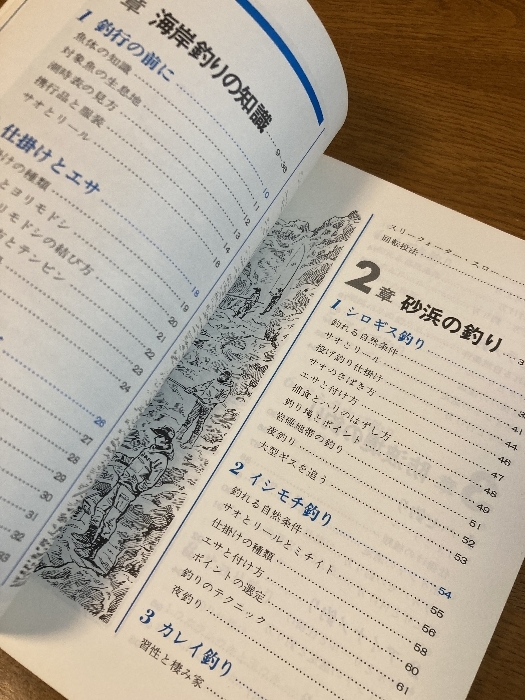 章 海岸釣りの知識……9~38
1 釣行の前に……10
魚体の知識……11
対象魚の生息地……12
潮時表の見方……14
携行品と服装……13
サオとリール……16
仕掛けとエサ……18
けの種類
とヨリモドシ……19
リモドシの結び方……20
とテンビン
21
22
23
24
26
27
28
29
30
31
32
33
スリークォーター・スロー
回転投法
2章 砂浜の釣り
1 シロギス釣り
釣れる自然条件
サオとリール……41
投げ釣り仕掛け……44
サオのさばき方……46
エサと付け方……47
捕食とハリのはずし方……48
釣り場とポイント……49
岩礁地帯の釣り……51
夜釣り……52
大型ギスを追う……53
2 イシモチ釣り……54
釣れる自然条件……55
サオとリールとミチイト……56
仕掛けの種類……58
エサと付け方……60
ポイントの選定……61
釣りのテクニック
夜釣り
3 カレイ釣り
習性と棲み家